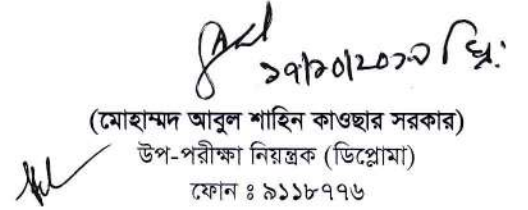 (মোহাম্মদ আবুল শাহিন কাওছার সরকার)
উপ-পরীক্ষা নিয়ন্ত্রক (ডিপ্লোমা)
ফোন ঃ ৯১১৮৭৭৬